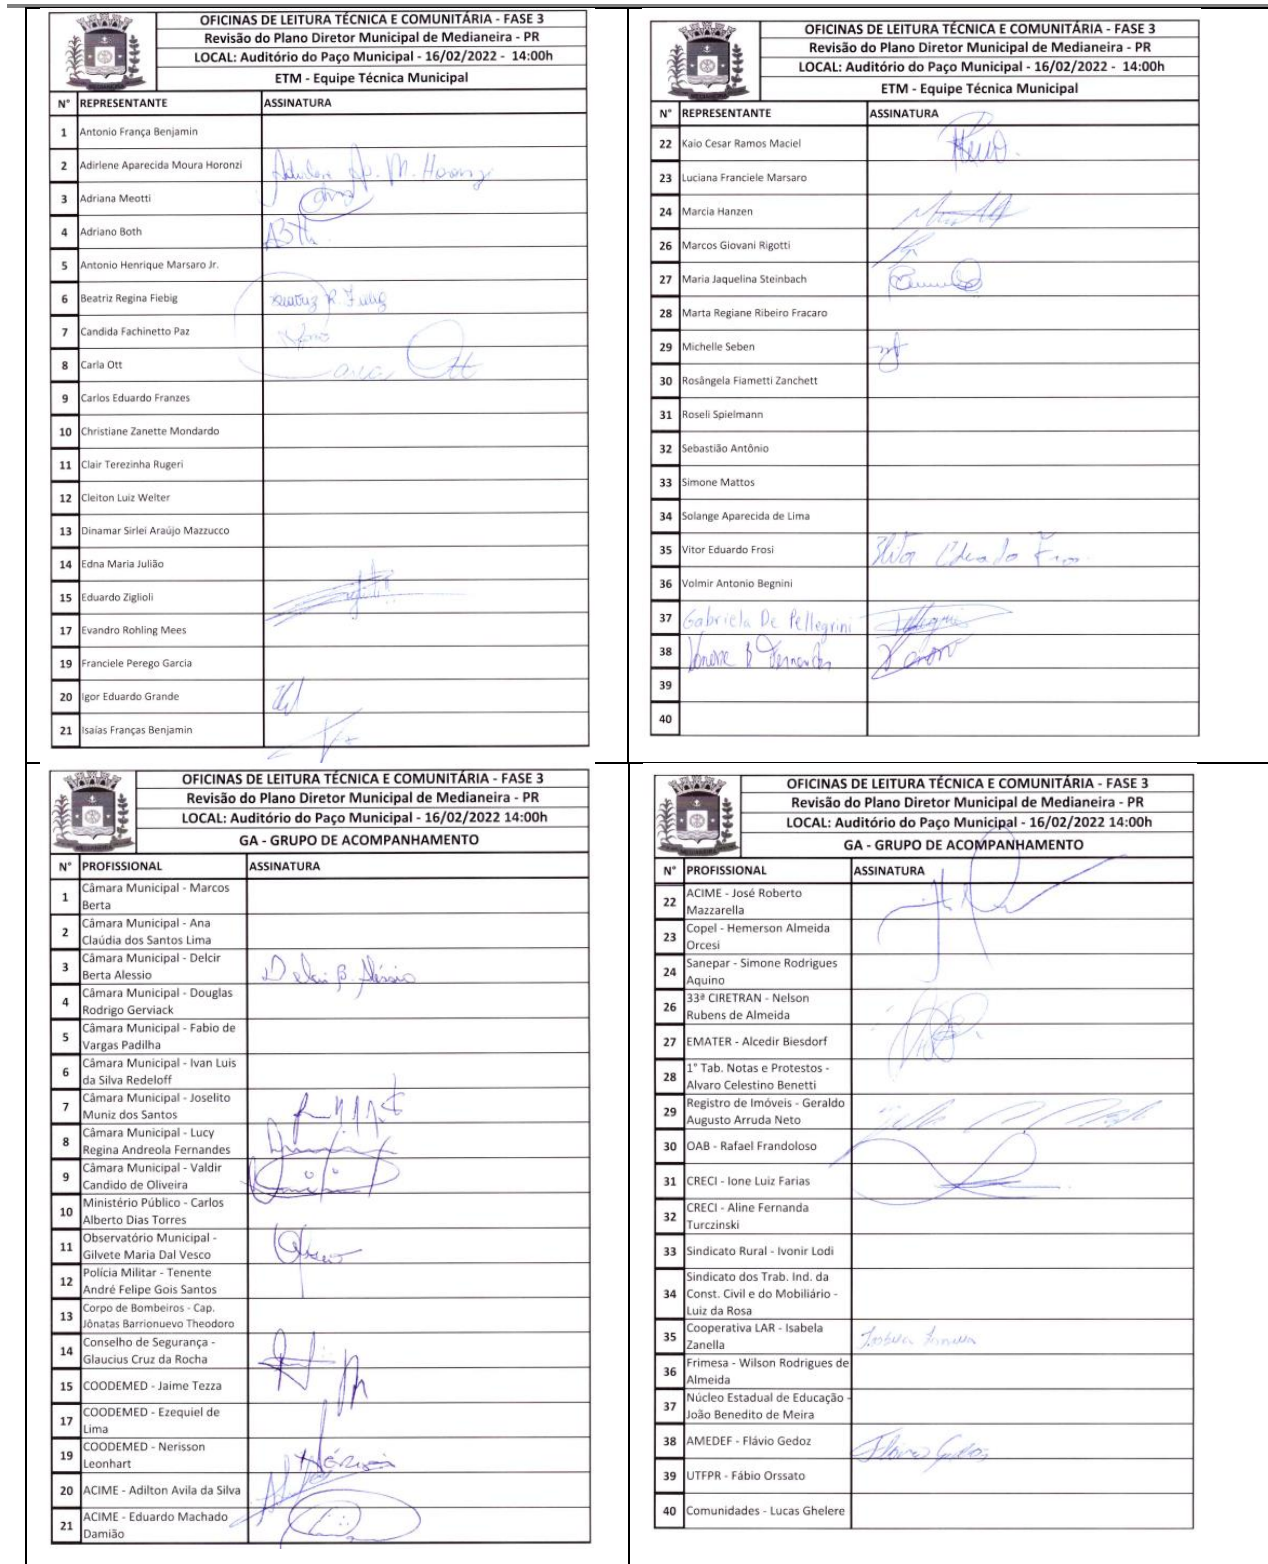 OFICINAS DE LEITURA TÉCNICA E COMUNITÁRIA - FASE 3
Revisão do Plano Diretor Municipal de Medianeira - PR
LOCAL: Auditório do Paço Municipal - 16/02/2022 - 14:00h
ETM - Equipe Técnica Municipal
N° REPRESENTANTE ASSINATURA
1 Antonio França Benjamin
2 Adirlene Aparecida Moura Horonzi Adirlene Ap. M. Horonzi
3 Adriana Meotti
4 Adriano Both ABoth
5 Antonio Henrique Marsaro Jr.
6 Beatriz Regina Fiebig Beatriz R. Fiebig
7 Candida Fachinetto Paz
8 Carla Ott Carla Ott
9 Carlos Eduardo Franzes
10 Christiane Zanette Mondardo
11 Clair Terezinha Rugeri
12 Cleiton Luiz Welter
13 Dinamar Sirlei Araújo Mazzucco
14 Edna Maria Julião
15 Eduardo Ziglioli
17 Evandro Rohling Mees
19 Franciele Perego Garcia
20 Igor Eduardo Grande
21 Isaías Franças Benjamin
OFICINAS DE LEITURA TÉCNICA E COMUNITÁRIA - FASE 3
Revisão do Plano Diretor Municipal de Medianeira - PR
LOCAL: Auditório do Paço Municipal - 16/02/2022 - 14:00h
ETM - Equipe Técnica Municipal
N° REPRESENTANTE ASSINATURA
22 Kaio Cesar Ramos Maciel
23 Luciana Franciele Marsaro
24 Marcia Hanzen
26 Marcos Giovani Rigotti
27 Maria Jaquelina Steinbach
28 Marta Regiane Ribeiro Fracaro
29 Michelle Seben
30 Rosângela Fiametti Zanchett
31 Roseli Spielmann
32 Sebastião Antônio
33 Simone Mattos
34 Solange Aparecida de Lima
35 Vitor Eduardo Frosi Vitor Eduardo Frosi
36 Volmir Antonio Begnini
37 Gabriela De Pellegrini
38 Fernandes
39
40
OFICINAS DE LEITURA TÉCNICA E COMUNITÁRIA - FASE 3
Revisão do Plano Diretor Municipal de Medianeira - PR
LOCAL: Auditório do Paço Municipal - 16/02/2022 14:00h
GA - GRUPO DE ACOMPANHAMENTO
N° PROFISSIONAL ASSINATURA
1 Câmara Municipal - Marcos
Berta
2 Câmara Municipal - Ana
Claúdia dos Santos Lima
3 Câmara Municipal - Delcir
Berta Alessio Delcir B. Aléssio
4 Câmara Municipal - Douglas
Rodrigo Gerviack
5 Câmara Municipal - Fabio de
Vargas Padilha
6 Câmara Municipal - Ivan Luis
da Silva Redeloff
7 Câmara Municipal - Joselito
Muniz dos Santos
8 Câmara Municipal - Lucy
Regina Andreola Fernandes
9 Câmara Municipal - Valdir
Candido de Oliveira
10 Ministério Público - Carlos
Alberto Dias Torres
11 Observatório Municipal -
Gilvete Maria Dal Vesco
12 Polícia Militar - Tenente
André Felipe Gois Santos
13 Corpo de Bombeiros - Cap.
Jônatas Barrionuevo Theodoro
14 Conselho de Segurança -
Glaucius Cruz da Rocha
15 COODEMED - Jaime Tezza
17 COODEMED - Ezequiel de
Lima
19 COODEMED - Nerisson
Leonhart
20 ACIME - Adilton Avila da Silva
21 ACIME - Eduardo Machado
Damião
OFICINAS DE LEITURA TÉCNICA E COMUNITÁRIA - FASE 3
Revisão do Plano Diretor Municipal de Medianeira - PR
LOCAL: Auditório do Paço Municipal - 16/02/2022 14:00h
GA - GRUPO DE ACOMPANHAMENTO
N° PROFISSIONAL ASSINATURA
22 ACIME - José Roberto
Mazzarella
23 Copel - Hemerson Almeida
Orcesi
24 Sanepar - Simone Rodrigues
Aquino
26 33ª CIRETRAN - Nelson
Rubens de Almeida
27 EMATER - Alcedir Biesdorf
28 1° Tab. Notas e Protestos -
Alvaro Celestino Benetti
29 Registro de Imóveis - Geraldo
Augusto Arruda Neto
30 OAB - Rafael Frandoloso
31 CRECI - Ione Luiz Farias
32 CRECI - Aline Fernanda
Turczinski
33 Sindicato Rural - Ivonir Lodi
34 Sindicato dos Trab. Ind. da
Const. Civil e do Mobiliário -
Luiz da Rosa
35 Cooperativa LAR - Isabela
Zanella Isabela Zanella
36 Frimesa - Wilson Rodrigues de
Almeida
37 Núcleo Estadual de Educação -
João Benedito de Meira
38 AMEDEF - Flávio Gedoz Flávio Gedoz
39 UTFPR - Fábio Orssato
40 Comunidades - Lucas Ghelere